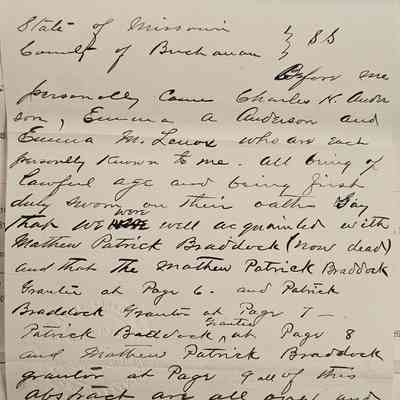 State of Missouri } SS
County of Buchanan }
Before me
personally came Charles N. Ander
son, Emma A Anderson and
Emma M. Lenox who are each
personally known to me. all being of
lawful age and being first
duly sworn on their oaths Say
that we were well acquainted with
Mathew Patrick Braddock (now dead)
and that the Mathew Patrick Braddock
Grantee at Page 6. and Patrick
Braddock Grantor at Page 7 —
Patrick Braddock Grantee at Page 8
and Mathew Patrick Braddock
grantor at Page 9 all of this
abstract are all one and